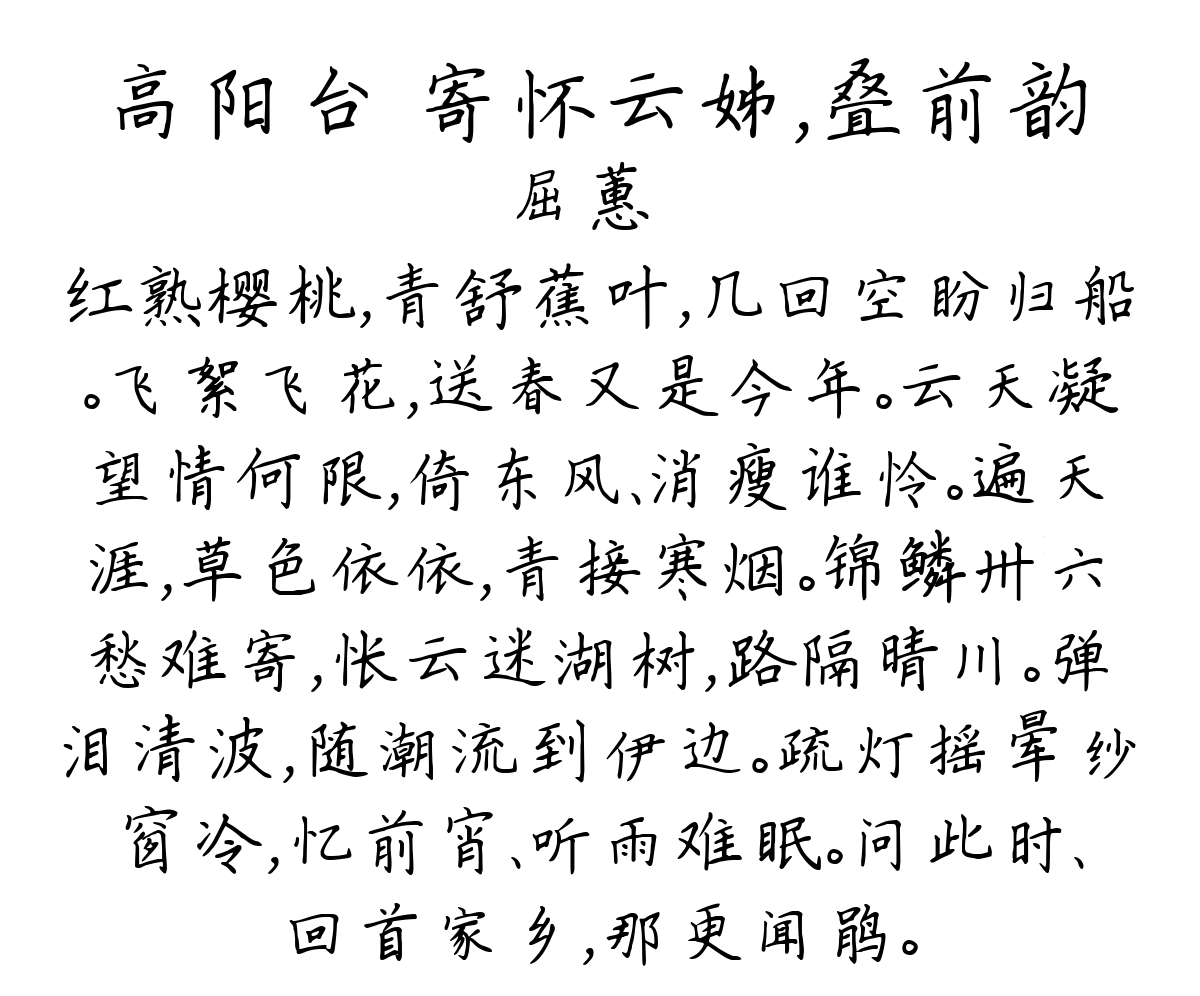 高阳台 寄怀云姊,叠前韵
屈蕙
红熟樱桃,青舒蕉叶,几回空盼归船
。飞絮飞花,送春又是今年。云天凝
望情何限,倚东风、消瘦谁怜。遍天
涯,草色依依,青接寒烟。锦鳞卅六
愁难寄,怅云迷湖树,路隔晴川。弹
泪清波,随潮流到伊边。疏灯摇晕纱
窗冷,忆前宵、听雨难眠。问此时、
回首家乡,那更闻鹃。